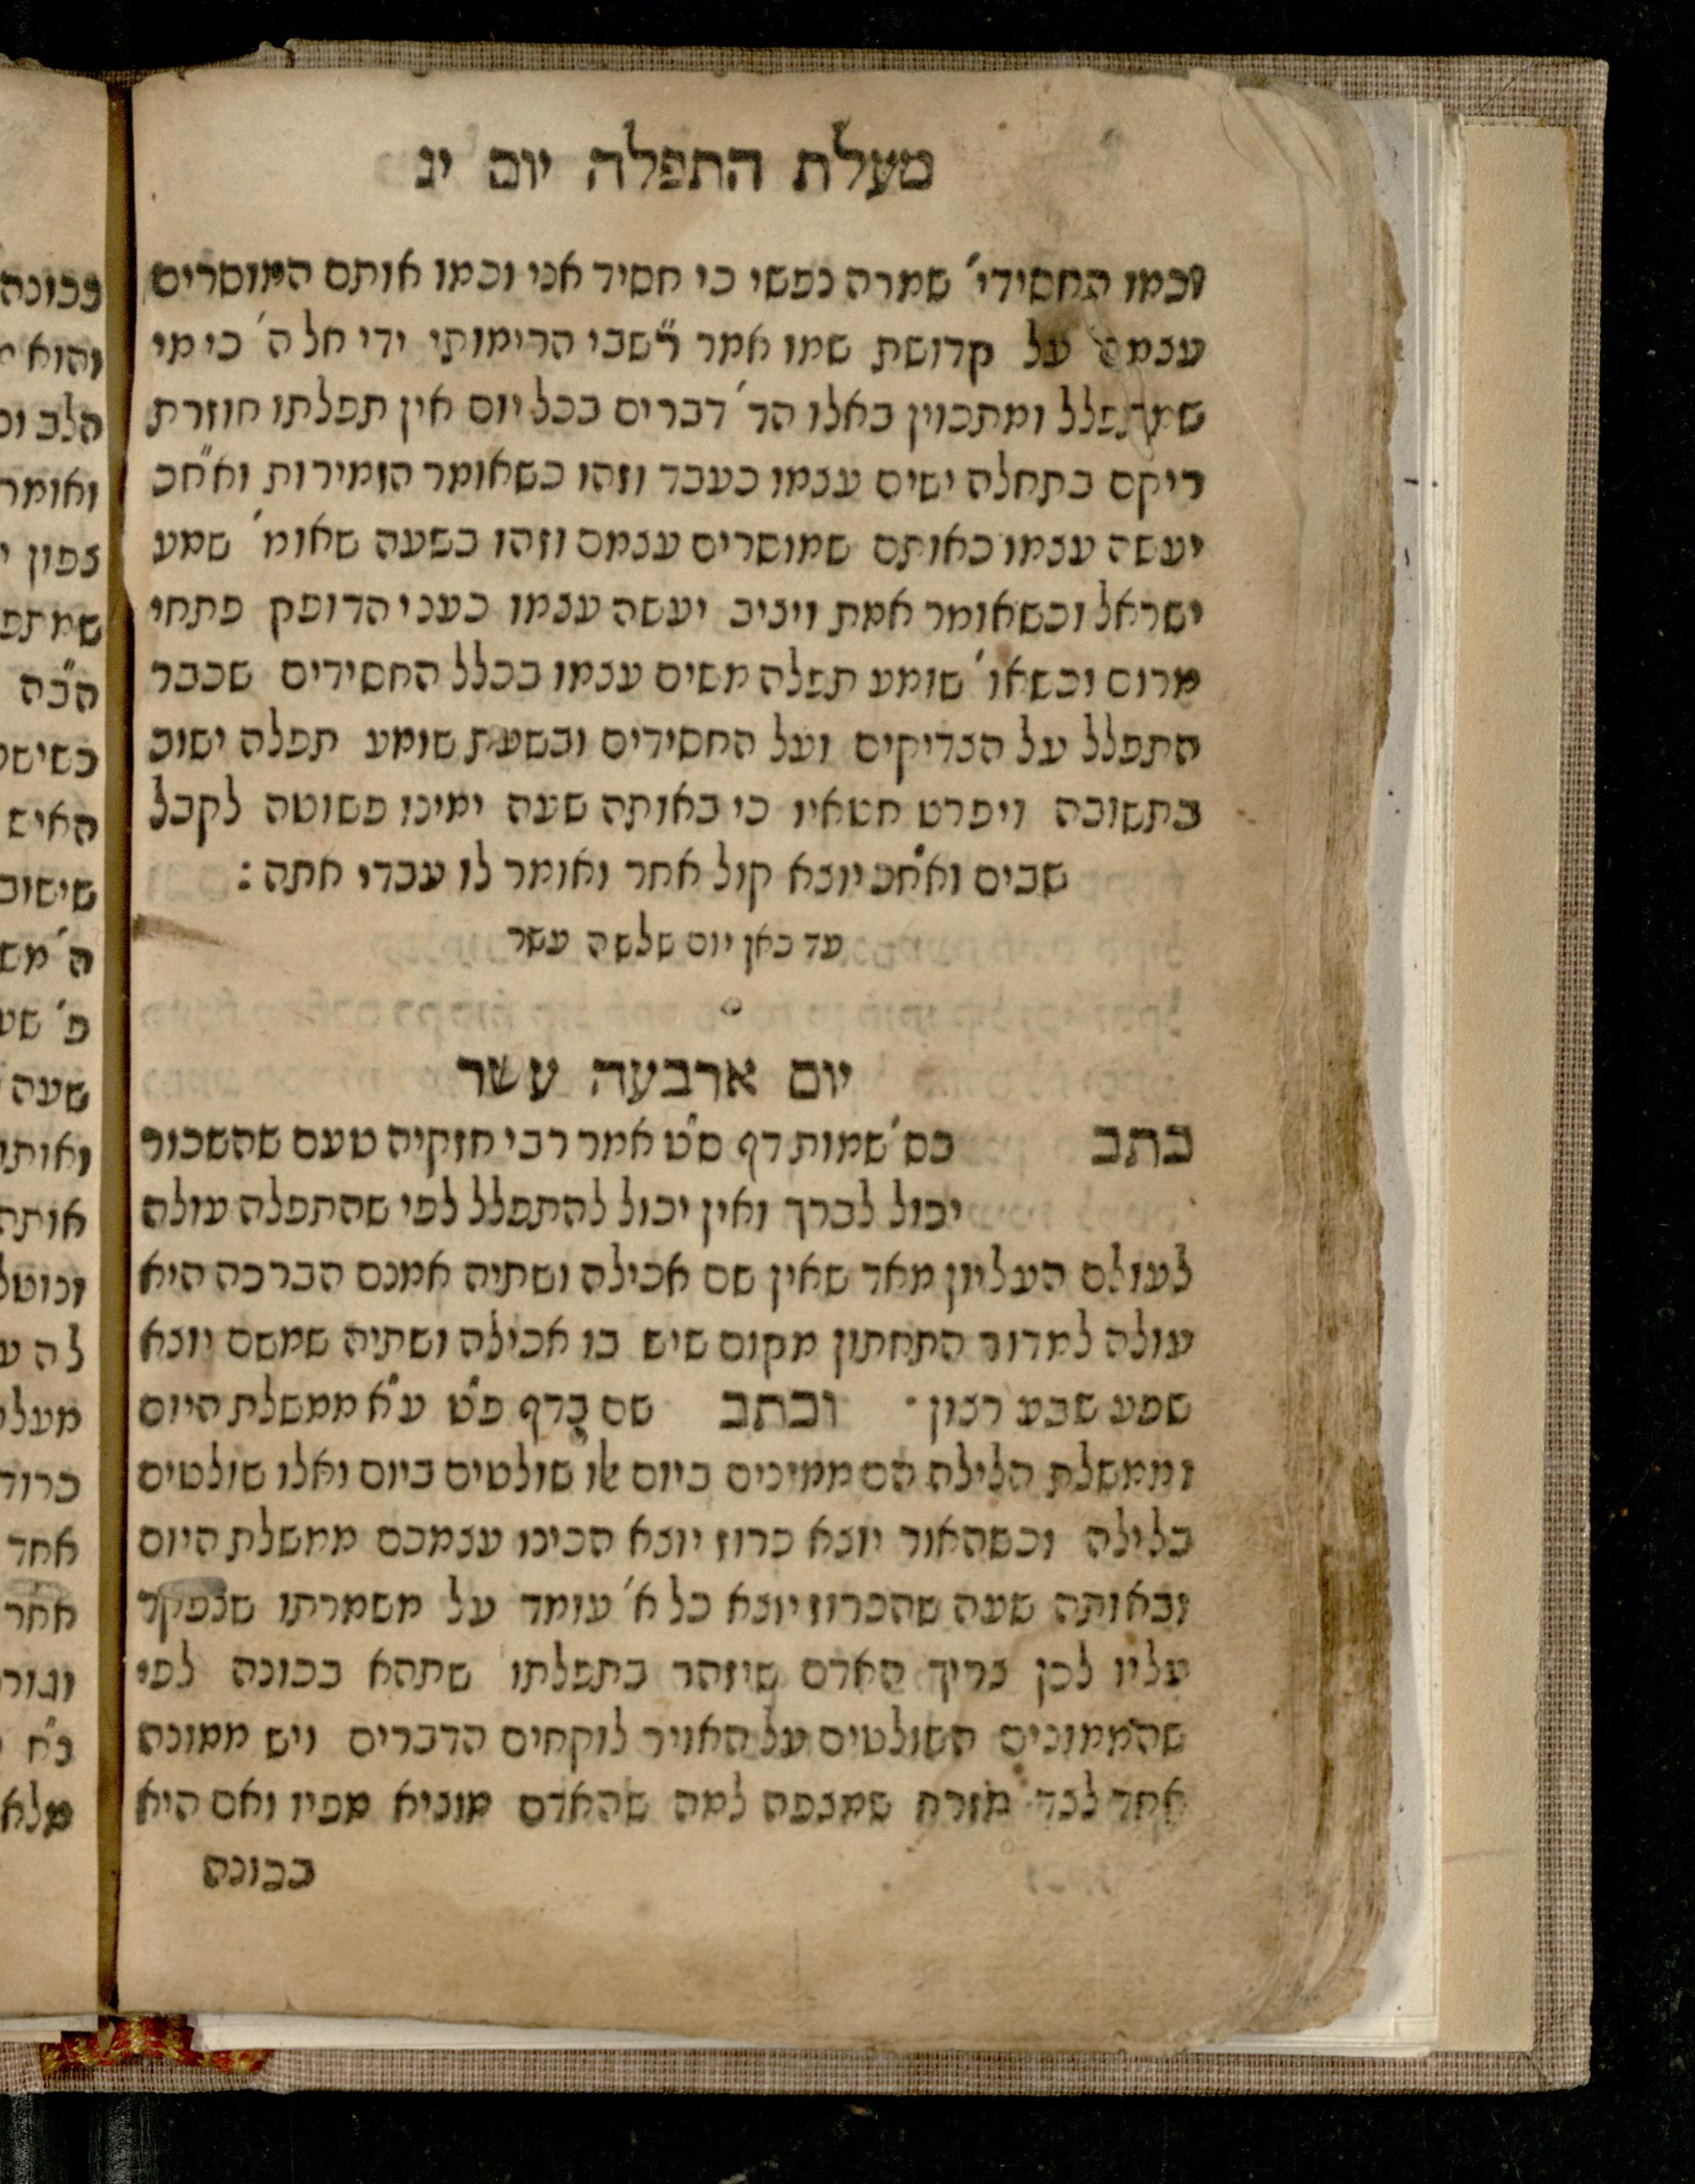 מעלת התפלה יום יג
וכמו החסידי' שמרה נפשי כי חסיד אני וכמו אותם המוסרים
עצמם על קדושת שמו אמר רשב"י הרימותי ידי חל ה' כי מי
שמתפלל ומתכוין באלו הד' דברים בכל יום אין תפלתו חוזרת
ריקם בתחלה ישים עצמו כעבד וזהו כשאומר הזמירות ואח"כ
יעשה עצמו כאותם שמוסרים עצמם וזהו בשעה שאומ' שמע
ישראל וכשאומר אמת ויציב יעשה עצמו כעני הדופק פתחי
מרום וכשאו' שומע תפלה משים עצמו בכלל החסידים שכבר
התפלל על הצדיקים ועל החסידים ובשעת שומע תפלה ישוב
בתשובה ויפרט חטאיו כי באותה שעה ימינו פשוטה לקבל
שבים ואח"כ יוצא קול אחד ואומר לו עבדי אתה :
עד כאן יום שלשה עשר
יום ארבעה עשר
כתב בס' שמות דף ס"ט אמר רבי חזקיה טעם שהשכור
יכול לברך ואין יכול להתפלל לפי שהתפלה עולה
לעולם העליון מאד שאין שם אכילה ושתיה אמנם הברכה היא
עולה למדור התחתון מקום שיש בו אכילה ושתיה שמשם יוצא
שפע שבע רצון · וכתב שם בדף פ"ט ע"א ממשלת היום
וממשלת הלילה הם ממונים ביום אלו שולטים ביום ואלו שולטים
בלילה וכשהאור יוצא כרוז יוצא הכינו עצמכם ממשלת היום
ובאותה שעה שהכרוז יוצא כל א' עומד על משמרתו שנפקד
עליו לכן צריך האדם שיזהר בתפלתו שתהא בכונה לפי
שהממונים השולטים על האויר לוקחים הדברים ויש ממונה
אחד לצד מזרח שמצפה למה שהאדם מוציא מפיו ואם היא
בכונה